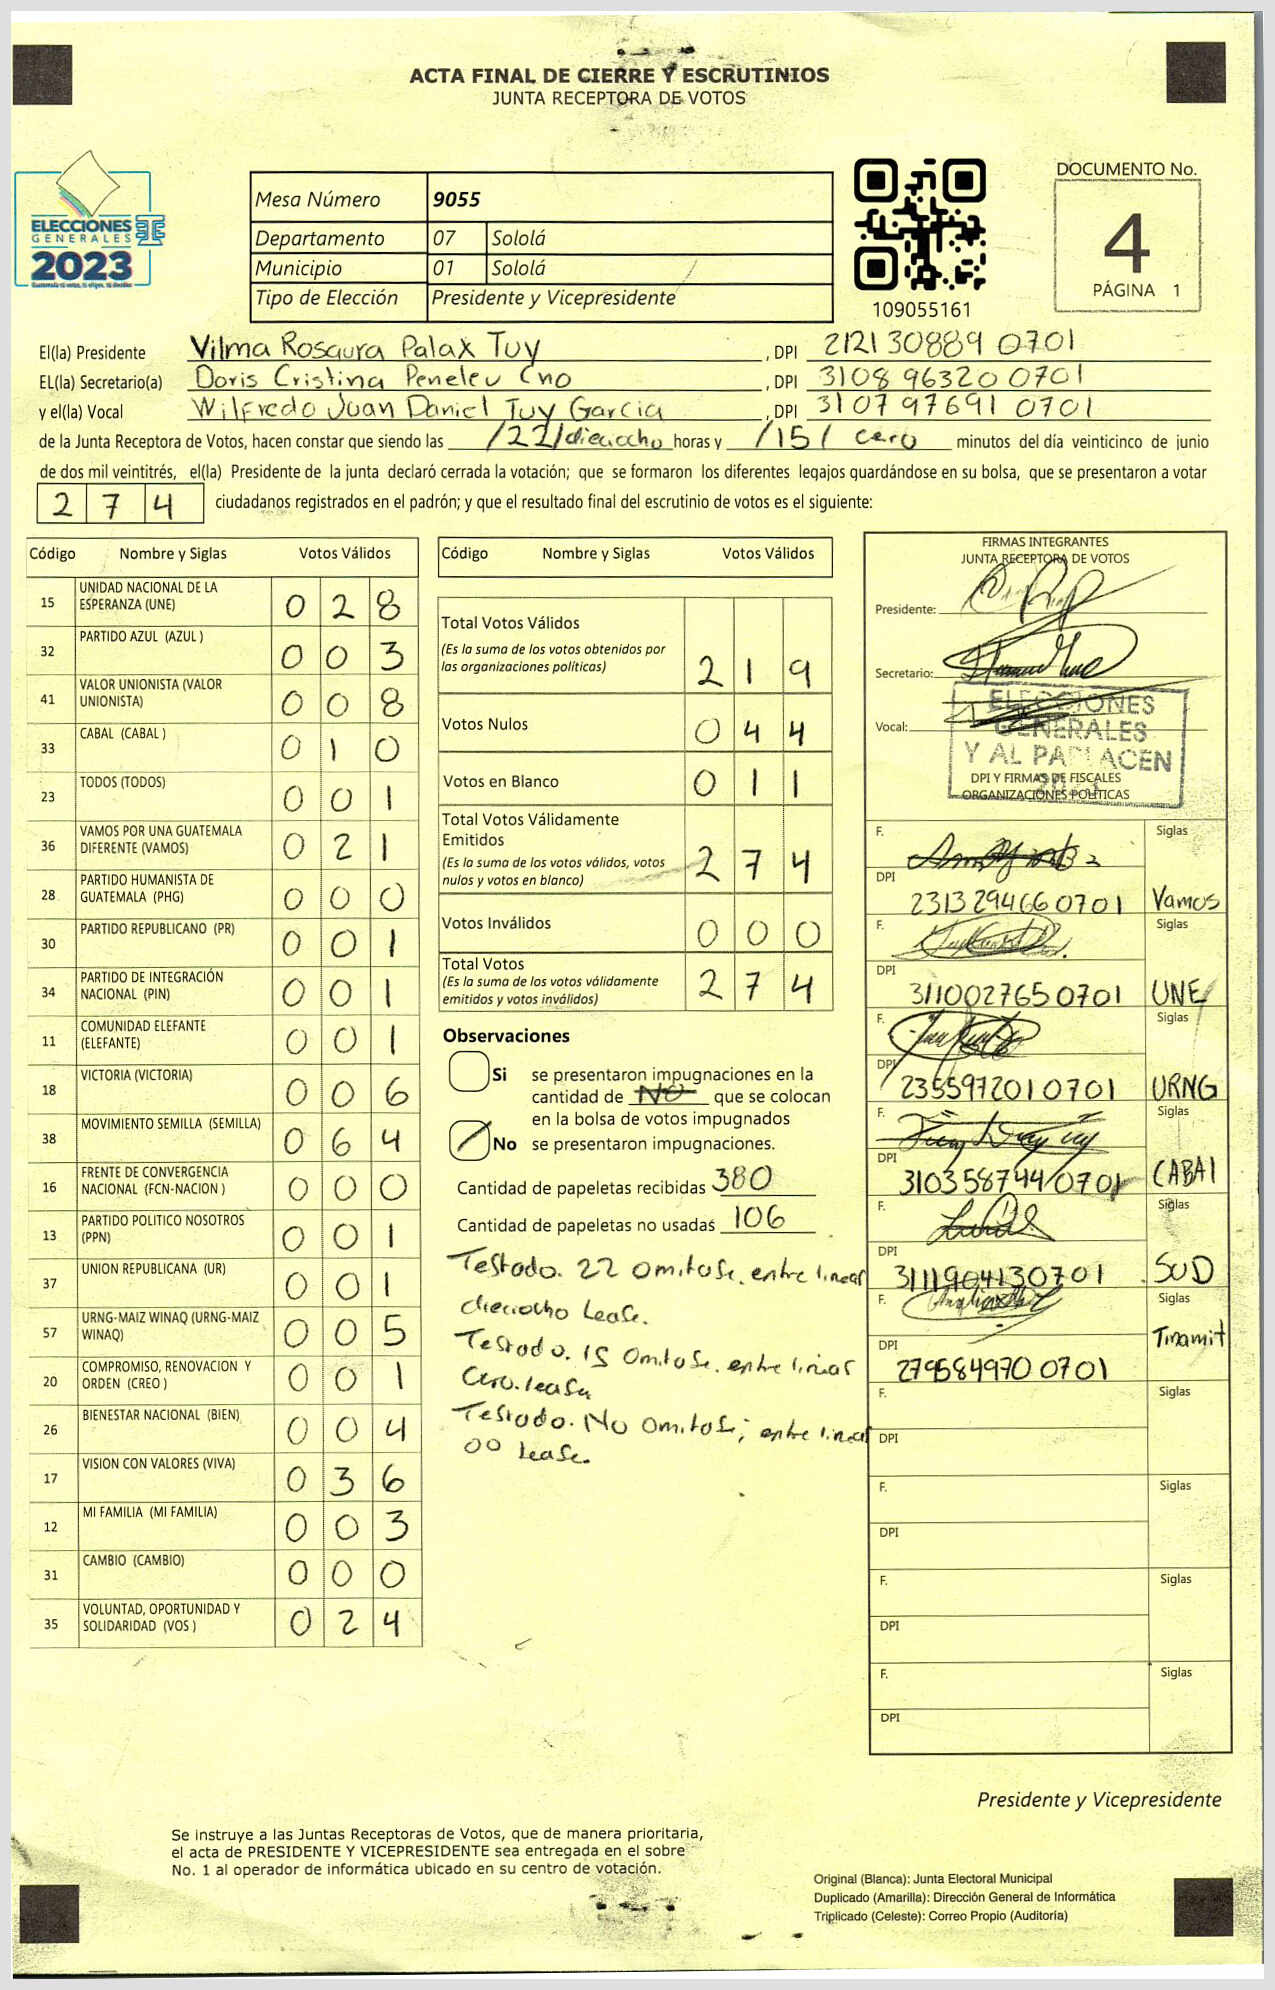 ACTA FINAL DE CIERRE Y ESCRUTINIOS
JUNTA RECEPTORA DE VOTOS
ELECCIONES
GENERALES
2023
Mesa Número 9055
Departamento 07 Sololá
Municipio 01 Sololá
Tipo de Elección Presidente y Vicepresidente
109055161
DOCUMENTO No.
4
PÁGINA 1
El(la) Presidente Vilma Rosaura Palax Tuy , DPI 2121 30889 0701
EL(la) Secretario(a) Doris Cristina Peneleu Cno , DPI 3108 96320 0701
y el(la) Vocal Wilfredo Juan Daniel Tuy Garcia , DPI 3107 97691 0701
de la Junta Receptora de Votos, hacen constar que siendo las /22/dieciocho horas y /15/ cero minutos del día veinticinco de junio
de dos mil veintitrés, el(la) Presidente de la junta declaró cerrada la votación; que se formaron los diferentes legajos guardándose en su bolsa, que se presentaron a votar
274 ciudadanos registrados en el padrón; y que el resultado final del escrutinio de votos es el siguiente:
Código Nombre y Siglas Votos Válidos
15 UNIDAD NACIONAL DE LA ESPERANZA (UNE) 028
32 PARTIDO AZUL (AZUL ) 003
41 VALOR UNIONISTA (VALOR UNIONISTA) 008
33 CABAL (CABAL ) 010
23 TODOS (TODOS) 001
36 VAMOS POR UNA GUATEMALA DIFERENTE (VAMOS) 021
28 PARTIDO HUMANISTA DE GUATEMALA (PHG) 000
30 PARTIDO REPUBLICANO (PR) 001
34 PARTIDO DE INTEGRACIÓN NACIONAL (PIN) 001
11 COMUNIDAD ELEFANTE (ELEFANTE) 001
18 VICTORIA (VICTORIA) 006
38 MOVIMIENTO SEMILLA (SEMILLA) 064
16 FRENTE DE CONVERGENCIA NACIONAL (FCN-NACION ) 000
13 PARTIDO POLITICO NOSOTROS (PPN) 001
37 UNION REPUBLICANA (UR) 001
57 URNG-MAIZ WINAQ (URNG-MAIZ WINAQ) 005
20 COMPROMISO, RENOVACION Y ORDEN (CREO ) 001
26 BIENESTAR NACIONAL (BIEN) 004
17 VISION CON VALORES (VIVA) 036
12 MI FAMILIA (MI FAMILIA) 003
31 CAMBIO (CAMBIO) 000
35 VOLUNTAD, OPORTUNIDAD Y SOLIDARIDAD (VOS ) 024
Código Nombre y Siglas Votos Válidos
Total Votos Válidos 219
(Es la suma de los votos obtenidos por
las organizaciones políticas)
Votos Nulos 044
Votos en Blanco 011
Total Votos Válidamente
Emitidos 274
(Es la suma de los votos válidos, votos
nulos y votos en blanco)
Votos Inválidos 000
Total Votos 274
(Es la suma de los votos válidamente
emitidos y votos inválidos)
Observaciones
Si se presentaron impugnaciones en la
cantidad de No que se colocan
en la bolsa de votos impugnados
No se presentaron impugnaciones.
Cantidad de papeletas recibidas 380
Cantidad de papeletas no usadas 106
Testado. 22 Omitase. entre linear
dieciocho Lease.
Testado. 15 Omitase. entre linear
Cero. lease
Testado. No omitase; entre linear
00 Lease.
FIRMAS INTEGRANTES
JUNTA RECEPTORA DE VOTOS
Presidente:
Secretario:
Vocal:
ELECCIONES
GENERALES
Y AL PARLACEN
DPI Y FIRMAS DE FISCALES
ORGANIZACIONES POLÍTICAS
F. Siglas
DPI 2313 29466 0701 Vamos
F. Siglas
DPI 3110027650701 UNE
F. Siglas
DPI 2355972010701 URNG
F. Siglas
DPI 3103587440701 CABAl
F. Siglas
DPI 3111904130701 SUD
F. Siglas
DPI 279584970 0701 Tinamit
F. Siglas
DPI
F. Siglas
DPI
F. Siglas
DPI
F. Siglas
DPI
Presidente y Vicepresidente
Se instruye a las Juntas Receptoras de Votos, que de manera prioritaria,
el acta de PRESIDENTE Y VICEPRESIDENTE sea entregada en el sobre
No. 1 al operador de informática ubicado en su centro de votación.
Original (Blanca): Junta Electoral Municipal
Duplicado (Amarilla): Dirección General de Informática
Triplicado (Celeste): Correo Propio (Auditoría)